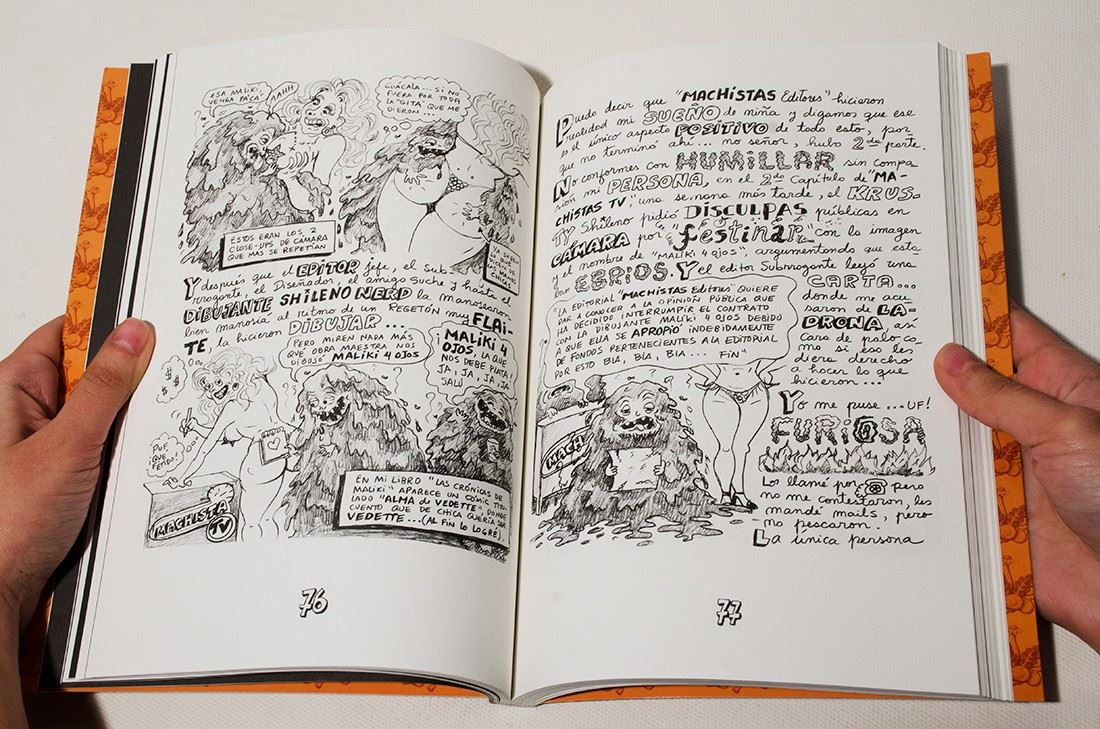 ESA MALIKI,
VENGA PA'CA
AAHH
GUÁCALA... SI NO
FUERA POR TODA
LA "GITA" QUE ME
DIERON...
ESTOS ERAN LOS 2
CLOSE-UPS DE CÁMARA
QUE MAS SE REPETÍAN
Y después que el EDITOR jefe, el Sub
rrogante, el Diseñador, el amigo Suche y hasta el
DIBUJANTE SHILENO NERD la manosearon
bien manosia al ritmo de un REGETÓN muy FLAI-
TE, la hicieron DIBUJAR...
PERO MIREN NADA MÁS
QUE OBRA MAESTRA NOS
DIBUJO MALIKI 4 OJOS
MALIKI 4
OJOS, LA QUE
NOS DEBE PLATA!
JA, JA, JA, JA
SALÚ
$ $
$
PUF,
¡QUE
FETIDO!
MACHISTA
TV
EN MI LIBRO "LAS CRÓNICAS DE
MALIKI" APARECE UN CÓMIC TITU
LADO "ALMA de VEDETTE", DONDE
CUENTO QUE DE CHICA QUERÍA SER
VEDETTE...(AL FIN lo LOGRÉ).
76
Puedo decir que "MACHISTAS Editores" hicieron
realidad mi SUEÑO de niña y digamos que ese
es el único aspecto POSITIVO de todo esto, por
que no terminó ahí... no señor, hubo 2da parte.
No conformes con HUMILLAR sin compa
sión mi PERSONA, en el 2do Capítulo de "MA-
CHISTAS TV", una semana más tarde, el KRUS-
TY Shileno pidió DISCULPAS públicas en
CÁMARA por "festinar" con la imagen
y el nombre de "MALIKI 4 OJOS", argumentando que esta
ban EBRIOS. Y el editor Subrrogante leyó una
CARTA...
donde me acu
saron de LA-
DRONA, así
cara de palo co
mo si eso les
diera derecho
a hacer lo que
hicieron...
"LA EDITORIAL "MACHISTAS Editores" QUIERE
DAR A CONOCER A LA OPINIÓN PÚBLICA QUE
HA DECIDIDO INTERRUMPIR EL CONTRATO
CON LA DIBUJANTE MALIKI 4 OJOS DEBIDO
A QUE ELLA SE APROPIÓ INDEBIDAMENTE
DE FONDOS PERTENECIENTES A LA EDITORIAL
POR ESTO BLA, BLA, BLA... FIN"
MACH
Yo me puse ...UF!
FURIOSA
Los llamé por pero
no me contestaron, les
mandé mails, pero
no pescaron.
La única persona
77